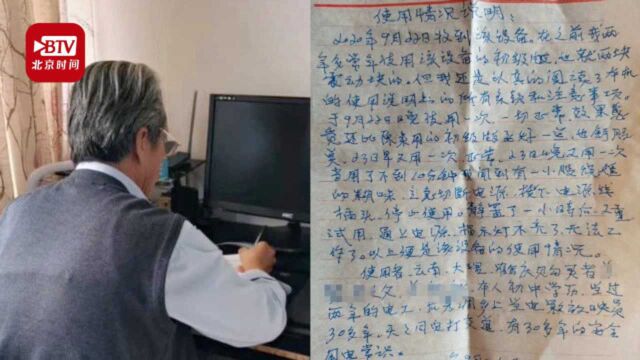 BTV
北京时间
使用情况说明:
2020年9月22日收到该设备。在之前我两
年多常年使用该设备的初级版,也就两块
震动块的。但我还是认真的阅读了本机
的使用说明书的所有条款和注意事项。
于9月22日晚使用一次,一切正常,效果感
觉还比原来用的初级版更好一些,也舒服
些。23日早又用一次正常,23日晚又用一次
当用了不到10分钟时闻到有一小股烧焦
的糊味,立克切断电源,拔下电源线
插头,停止使用。静置了一小时后,又重
试用,通上电源,指示灯不亮了,无法工
作了。以上便是该设备的使用情况。
使用者,云南、大理、
之父, 本人初中学历,当过
两年的电工,在
30多年,天天同电打交道,有30多年的安全
用电常识。